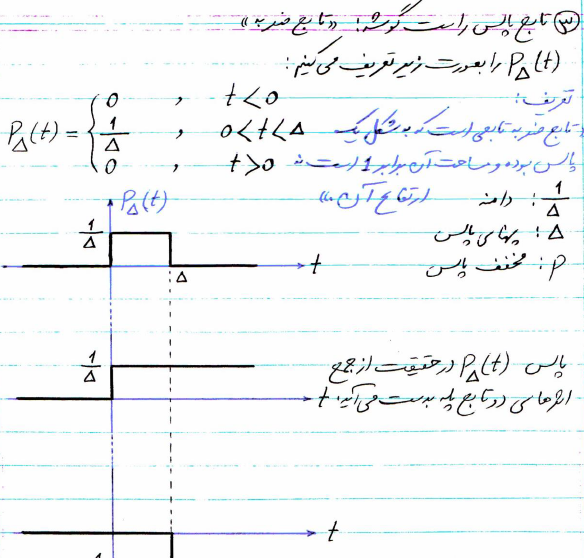 ③ تابع پالس راست گوشه: «تابع ضربه»
P_Δ(t) را بصورت زیر تعریف می کنیم:
تعریف:
P_Δ(t) = { 0 , t < 0
1/Δ , 0 < t < Δ
0 , t > 0
تابع ضربه تابعی است که به شکل یک
پالس بوده و مساحت آن برابر 1 است نه
ارتفاع آن.»
1/Δ : دامنه
Δ : پهنای پالس
P : مخفف پالس
P_Δ(t)
1/Δ
Δ
t
پالس P_Δ(t) در حقیقت از جمع
اثرهای دو تابع پله بدست می آید:
1/Δ
t
t
1